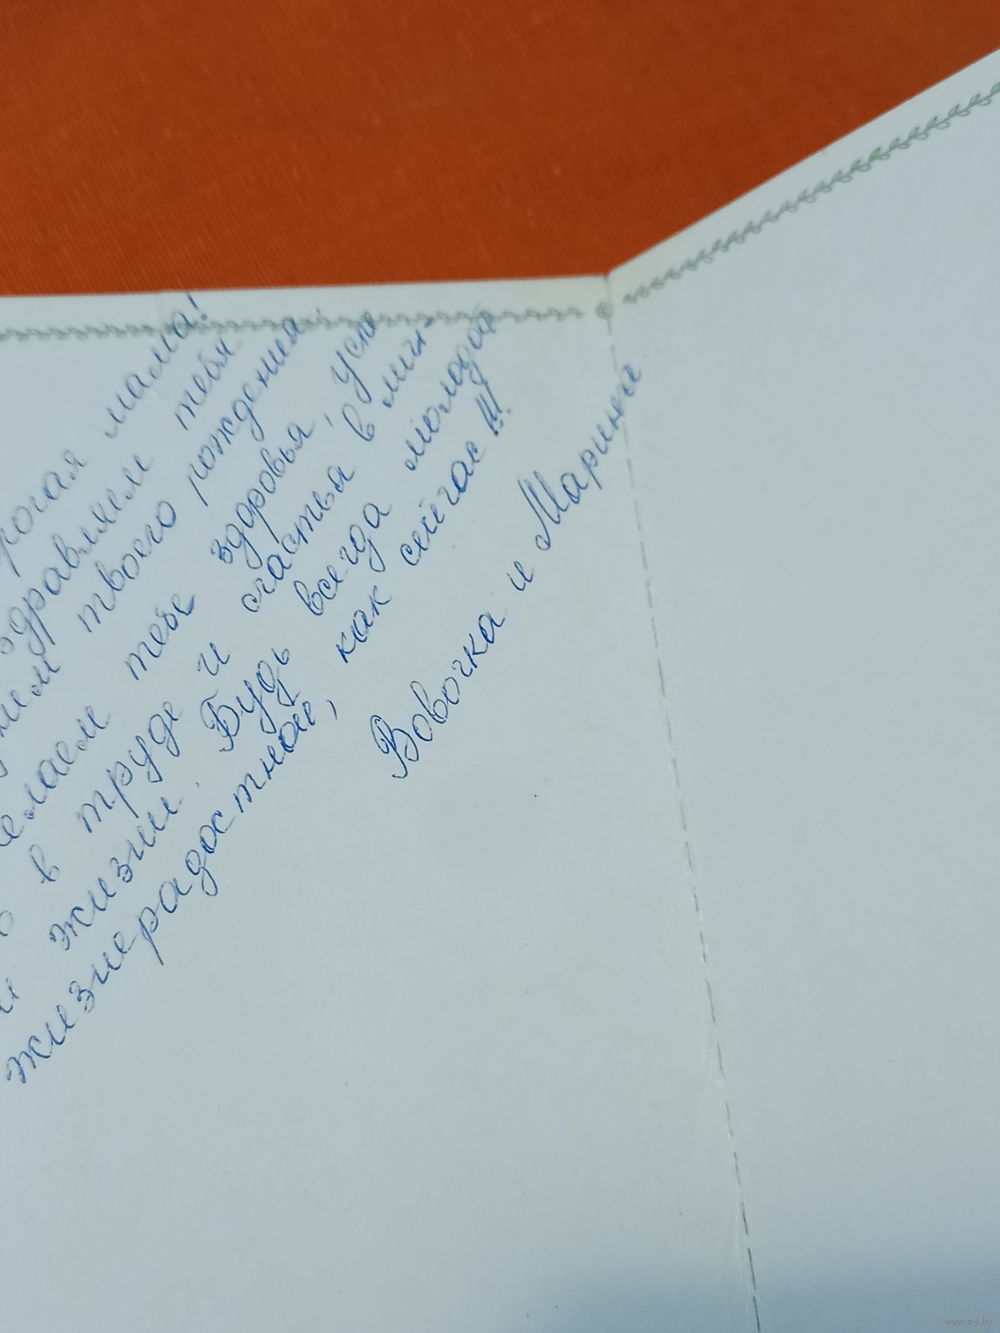 рогая мама!
здравляем тебя
твоего рождения
елаем тебе здоровья, успе
в труде и счастья в лич
жизни. Будь всегда молодой
жизнерадостной, как сейчас!!!
Вовочка и Марина
www.ay.by